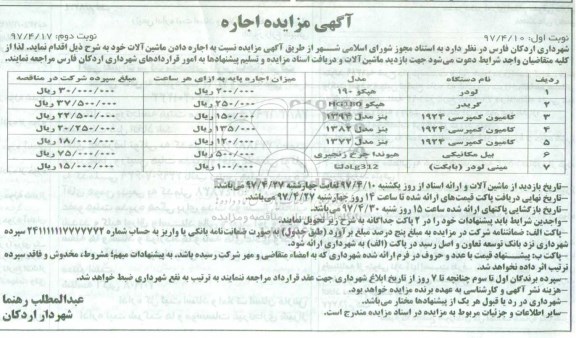 آگهی مزایده اجاره
نوبت اول: ۹۷/۴/۱۰
نوبت دوم: ۹۷/۴/۱۷
شهرداری اردکان فارس در نظر دارد به استناد مجوز شورای اسلامی شهر از طریق آگهی مزایده نسبت به اجاره دادن ماشین آلات خود به شرح ذیل اقدام نماید. لذا از
کلیه متقاضیان واجد شرایط دعوت می‌شود جهت بازدید ماشین آلات و دریافت اسناد مزایده و تسلیم پیشنهادها به امور قراردادهای شهرداری اردکان فارس مراجعه نمایند.
ردیف نام دستگاه مدل میزان اجاره پایه به ازای هر ساعت مبلغ سپرده شرکت در مناقصه
۱ لودر هپکو ۱۹۰ ۲۰۰/۰۰۰ ریال ۳۰/۰۰۰/۰۰۰ ریال
۲ گریدر هپکو HG180 ۲۵۰/۰۰۰ ریال ۳۷/۵۰۰/۰۰۰ ریال
۳ کامیون کمپرسی ۱۹۲۴ بنز مدل ۱۳۹۳ ۱۵۰/۰۰۰ ریال ۲۲/۵۰۰/۰۰۰ ریال
۴ کامیون کمپرسی ۱۹۲۴ بنز مدل ۱۳۸۲ ۱۳۵/۰۰۰ ریال ۲۰/۲۵۰/۰۰۰ ریال
۵ کامیون کمپرسی ۱۹۲۴ بنز مدل ۱۳۷۲ ۱۲۰/۰۰۰ ریال ۱۸/۰۰۰/۰۰۰ ریال
۶ بیل مکانیکی هیوندا چرخ زنجیری ۵۰۰/۰۰۰ ریال ۷۵/۰۰۰/۰۰۰ ریال
۷ مینی لودر (بابکت) lg312 ۱۰۰/۰۰۰ ریال ۱۵/۰۰۰/۰۰۰ ریال
-تاریخ بازدید از ماشین آلات و ارائه اسناد از روز یکشنبه ۹۷/۴/۱۰ لغایت چهارشنبه ۹۷/۴/۲۷ می‌باشد.
-تاریخ نهایی دریافت پاکت قیمت‌های ارائه شده تا ساعت ۱۴ روز چهارشنبه ۹۷/۴/۲۷ می‌باشد.
-تاریخ بازگشایی پاکتهای ارائه شده ساعت ۱۵ روز شنبه ۹۷/۴/۳۰ می‌باشد.
-واجدین شرایط باید پیشنهادات خود را در ۲ پاکت جداگانه به شرح زیر تحویل نمایند.
-پاکت الف: ضمانتنامه شرکت در مزایده به مبلغ پنج درصد مبلغ برآورد (طبق جدول) به صورت ضمانت نامه بانکی یا واریز به حساب شماره ۲۴۱۱۱۱۱۱۷۷۷۷۷۲ سپرده
شهرداری نزد بانک توسعه تعاون و اصل رسید در پاکت (الف) به شهرداری ارائه شود.
-پاکت ب: پیشنهاد قیمت با عدد و حروف در فرم ارائه شده شهرداری که به امضاء متقاضی و مهر شرکت رسیده باشد. به پیشنهادات مبهم؛ مشروط، مخدوش و فاقد سپرده
ترتیب اثر داده نخواهد شد.
-سپرده برندگان اول تا سوم چنانچه تا ۷ روز از تاریخ ابلاغ شهرداری جهت عقد قرارداد مراجعه ننمایند به ترتیب به نفع شهرداری ضبط خواهد شد.
-هزینه نشر آگهی و کارشناسی به عهده برنده مزایده خواهد بود.
-شهرداری در رد یا قبول هر یک از پیشنهادها مختار می‌باشد.
-سایر اطلاعات و جزئیات مربوط به مزایده در اسناد مزایده مندرج است.
عبدالمطلب رهنما
شهردار اردکان